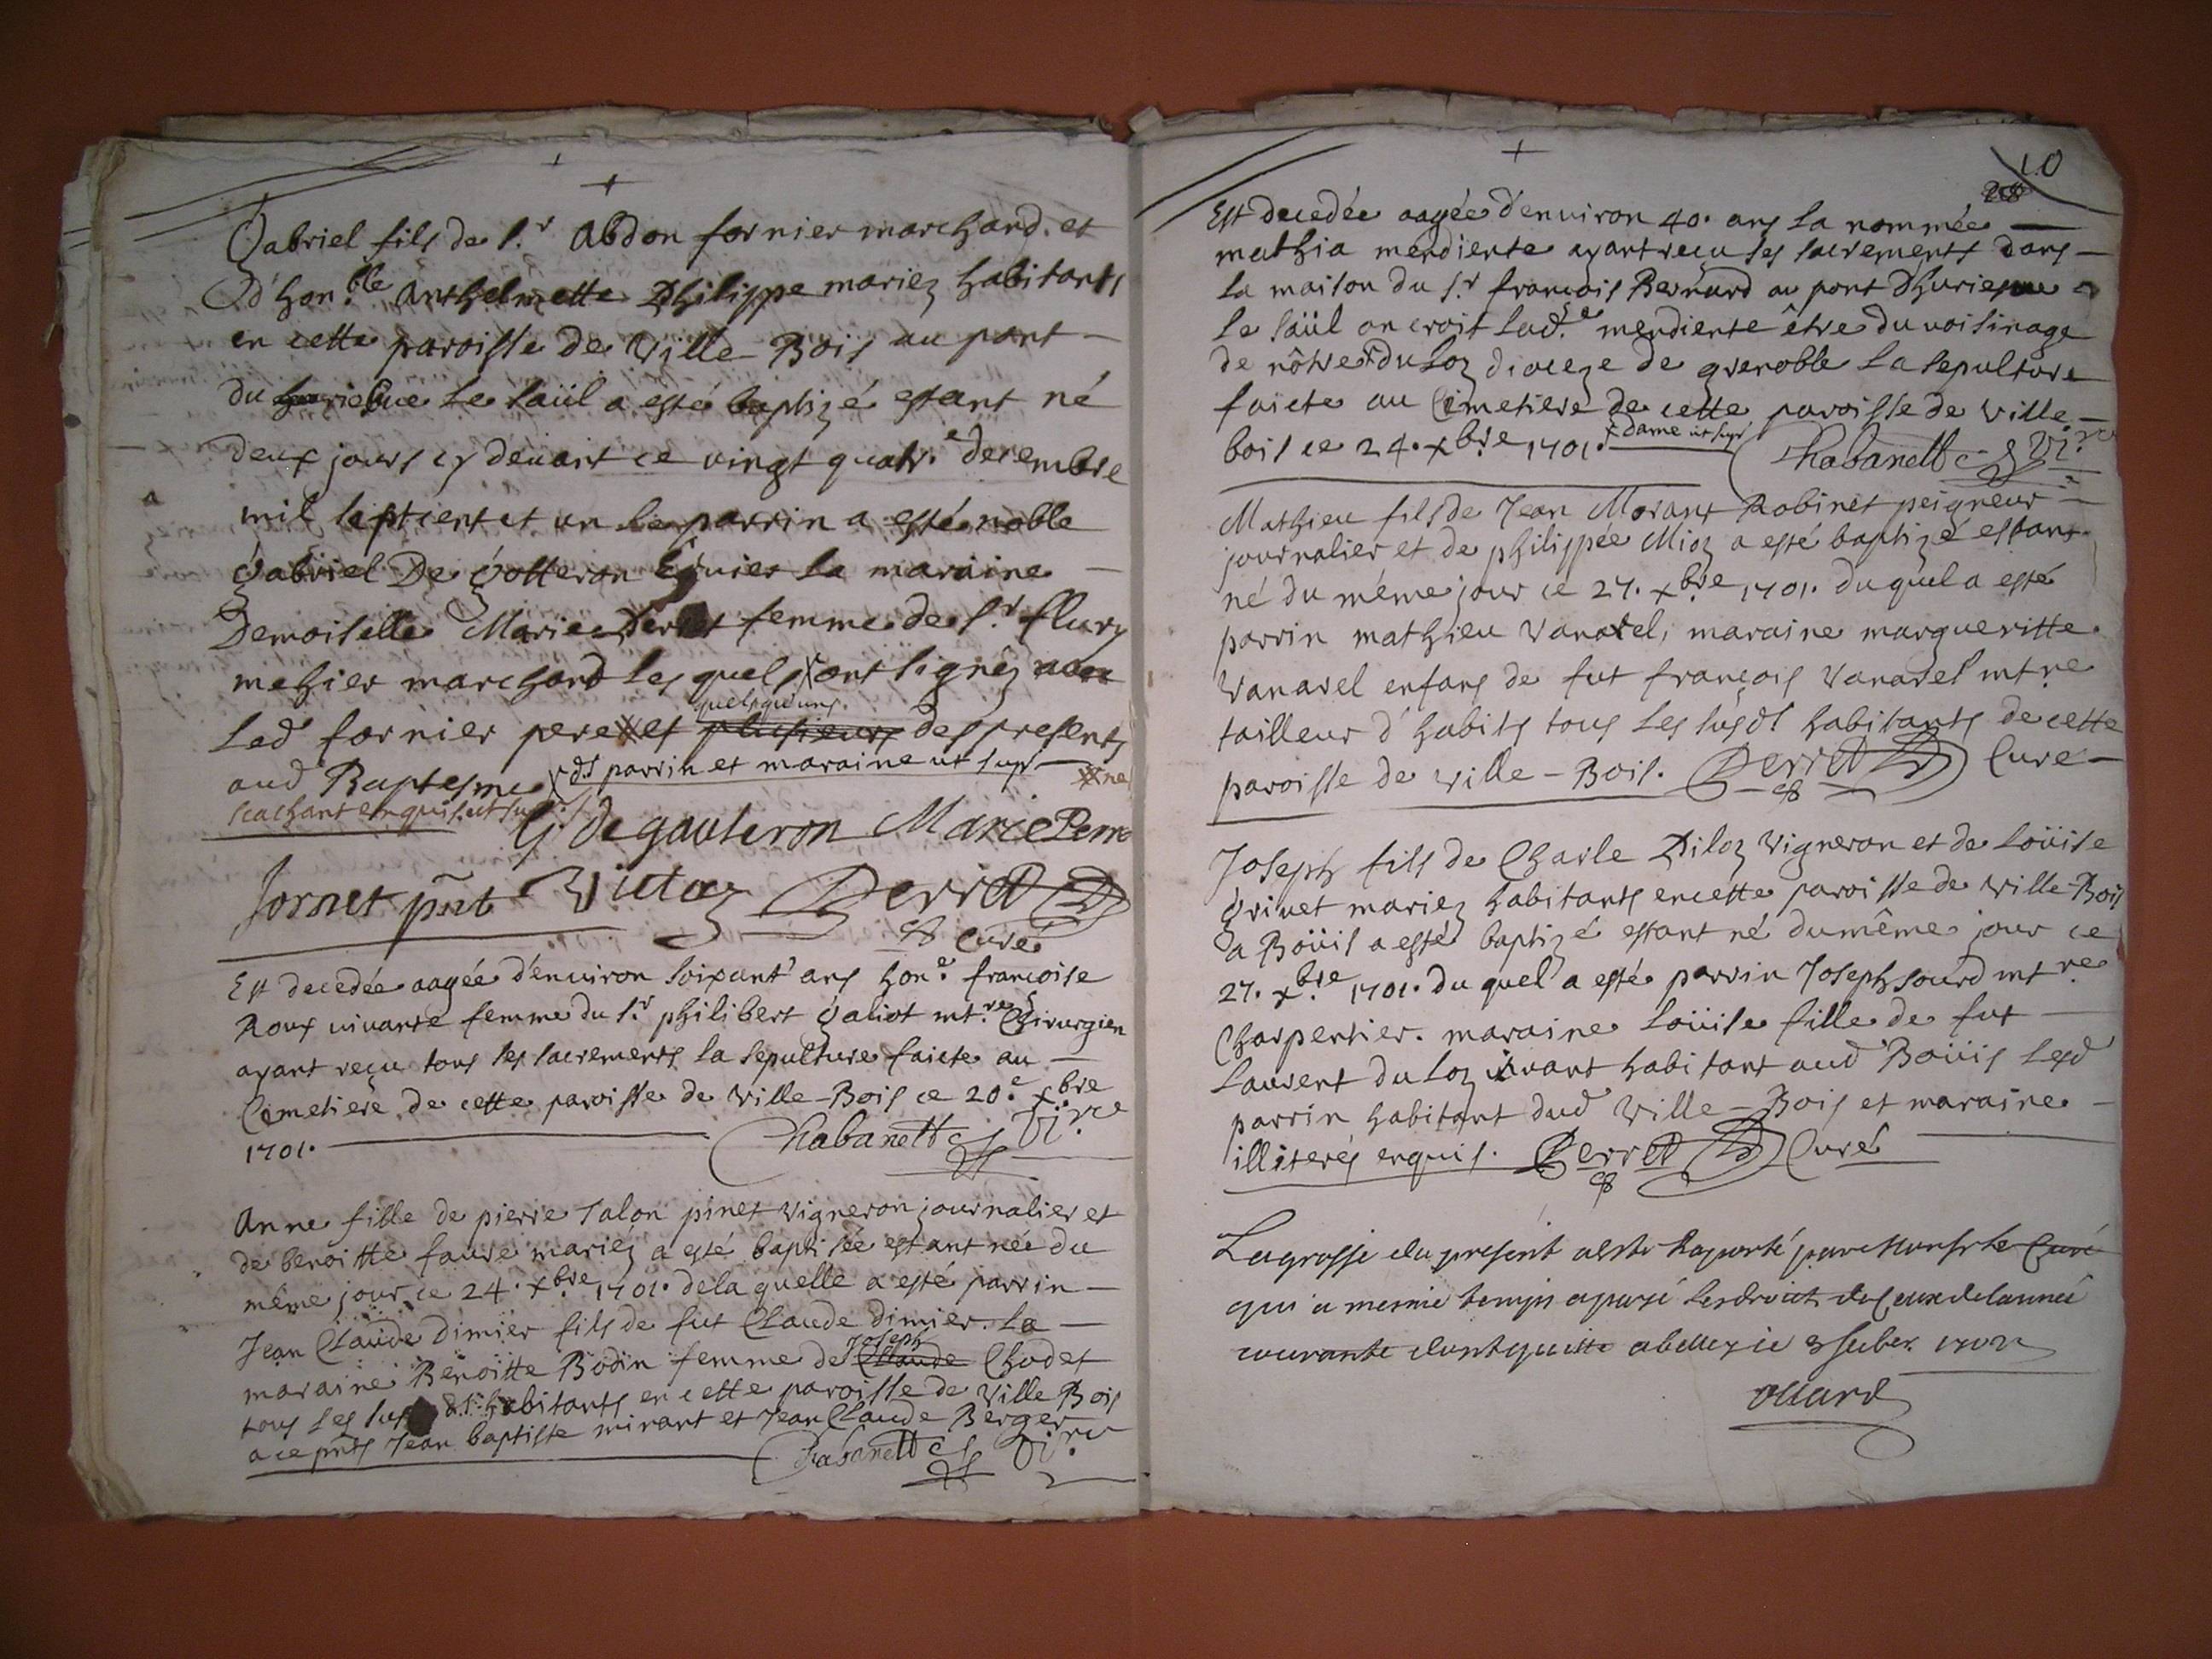 Gabriel fils de s.r Abdon fornier marchand et
d'hon.ble Anthelmette Philippe mariez habitants
en cette paroisse de Ville-Bois au pont
du Le saüil a esté baptizé estant né
deux jours cy devant ce vingt quatr.e decembre
mil septcent et un le parrin a esté noble
Gabriel De Gotteron Equier la maraine
Demoiselle Marie femme de s.r flury
mehier marchand lesquels x ont signéz avec
led fornier pere xx et plusieurs des presents
quelqu'uns
aud Baptesme x ds parrin et maraine ut sup xx ne
scachant enquis ut sup
G. de gauteron Marie Perre
fornet pnt Perret
Curé
Est decedée aagée d'environ soixant' ans hon.e francoise
Roux vivante femme du s.r philibert Galiot mt.re Chirurgien
ayant reçu tous les sacrements la sepulture faicte au
Cemetiere de cette paroisse de Ville-Bois ce 20.e xbre
1701. Chabanett Vi.re
Anne fille de pierre Talon pinet vigneron journalier et
de benoitte faure mariéz a esté baptisée estant née du
même jour ce 24. xbre 1701. de la quelle a esté parrin
Jean Claude Dimier fils de fut Claude dimier. La
maraine Benoitte Bodin femme de Claude Chodet
Joseph
tous les sus ds habitants en cette paroisse de Ville Bois
a ce pnts Jean baptiste mirant et Jean Claude Berger
Chabanett Vi.re
10
Est decedée aagée d'environ 40. ans la nommée
mathia mendiente ayant reçu les sacrements dans
la maison du s.r françois Bernard au pont
le saüil on croit lad.e mendiente être du voisinage
de nôtre x du Loz diocèze de grenoble la sepulture
faicte au Cimetiere de cette paroisse de ville
bois ce 24. xbre 1701. x dame ut sup Chabanett Vi.re
Mathieu fils de Jean Morant Robinet peigneur
journalier et de philippée Mioz a esté baptizé estant
né du même jour ce 27. xbre 1701. du quel a esté
parrin mathieu Vanarel, maraine margueritte
Vanarel enfans de fut françois Vanarel mtre
tailleur d'habits tous les susds habitants de cette
paroisse de Ville-Bois. Perret Curé
Joseph fils de Charle Piloz Vigneron et de Loüise
Grinet mariez habitants en cette paroisse de Ville-Bois
a Boüis a esté baptizé estant né du même jour ce
27. xbre 1701. du quel a esté parrin Joseph sourd mtre
Charpentier. maraine Loüise fille de fut
Laurent du Loz vivant habitant aud Boüis lesd
parrin habitant dud Ville-Bois et maraine
illiterés enquis. Perret Curé
La grosse du present a esté raporté par Monsr le Curé
qui a mesme temps a payé les droits de ceux de l'année
courante dont quitte a belley ce 1702